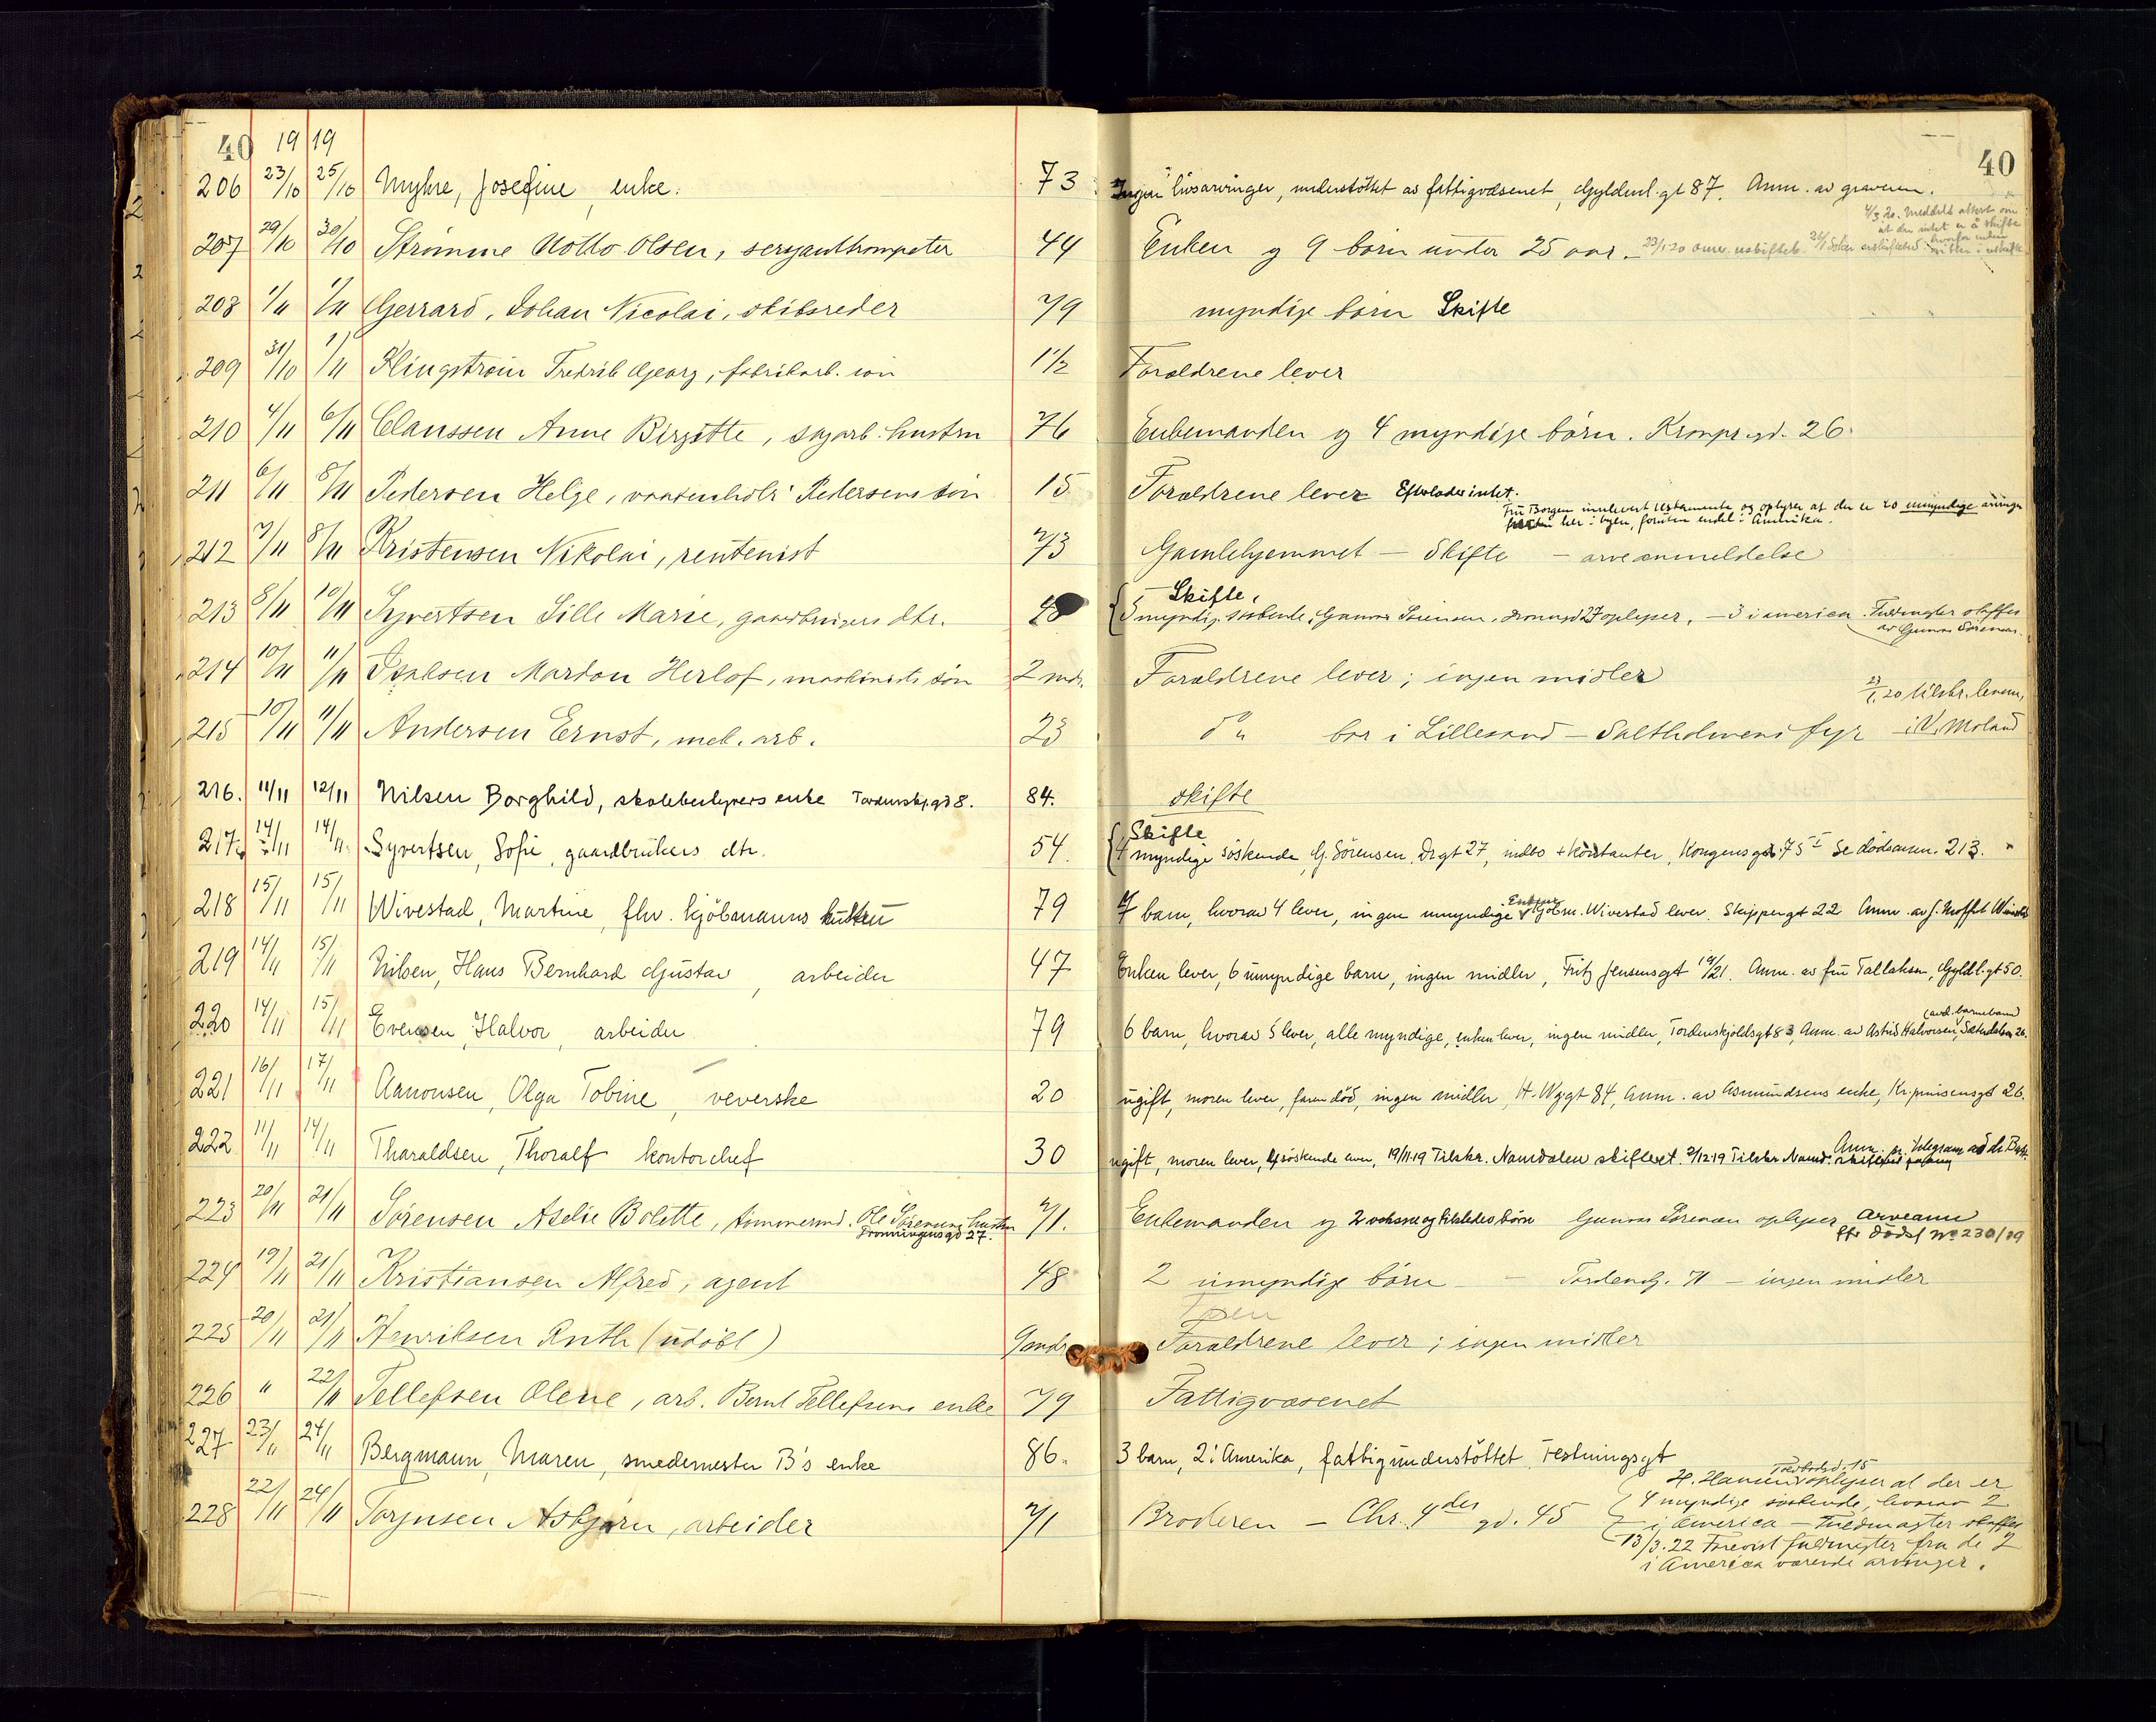 40 19 19
40
206 23/10 25/10 Myhre, Josefine, enke. 73 Ingen livsarvinger, understöttet av fattigvæsenet, Gyldenl.gt 87. Anm. av graveren.
4/3 20. Meddelt attest om
at der intet er å skifte
207 29/10 30/10 Strømme Notto Olsen, sersjanttrompeter 44 Enken og 9 børn under 25 aar. 23/1 20 uskiftet
208 1/11 1/11 Gerrard, Johan Nicolai, skibsreder 79 myndige børn Skifte
209 31/10 1/11 Klingstrøm Fredrik Georg, fabrikarb. søn 1 1/2 Forældrene lever
210 4/11 6/11 Claussen Anne Birgitte, sagarb. hustru 76 Enkemanden og 4 myndige børn. Kronpr.gd. 26
211 6/11 8/11 Pedersen Helge, Pedersens søn 15 Forældrene lever Efterlader intet.
Fru Borgen innlevert testamente og oplyser at der er 20 umyndige arvinger
her i byen, foruten endel i Amerika.
212 7/11 8/11 Kristensen Nikolai, rentenist 73 Gamlehjemmet — Skifte — arveanmeldelse
Skifte,
213 8/11 10/11 Syvertsen Sille Marie, gaardbrukers dtr. 5 myndige søskende, Gunnar Sørensen, Dronngd 27 oplyser, — 3 i America. Fuldmagter skaffes
av Gunnar Sørensen.
214 10/11 11/11 Isaksen Mardon Herlof, maskinists søn 2 mdr. Forældrene lever; ingen midler
23/1 20 tilskr. lensm.
215 10/11 11/11 Andersen Ernst, mek. arb. 23 do bor i Lillesand — Saltholmens fyr — i V. Moland
216. 11/11 12/11 Nilsen Borghild, skolebestyrers enke Tordenskj.gd 8. 84. skifte
Skifte
217 14/11 14/11 Syvertsen, Sofie, gaardbrukers dtr. 54. 4 myndige söskende, G. Sörensen, Dr.gt 27, indbo + kontanter, Kongensgt. 75 Se dödsanm. 213.
218 15/11 15/11 Wivestad, Martine, fhv. kjöbmanns hustru 79 7 barn, hvorav 4 lever, ingen umyndige Kjöbm. Wivestad lever. Skippergt 22 Anm. av J. Moffet Wivestad
219 14/11 15/11 Nilsen, Hans Bernhard Gustav, arbeider 47 Enken lever, 6 umyndige barn, ingen midler, Fritz Jensensgt 19/21. Anm. av fru Tallaksen, Gyldl.gt 50.
(avd. barnebarn)
220 14/11 15/11 Evensen, Halvor, arbeider 79 6 barn, hvorav 5 lever, alle myndige, enken lever, ingen midler, Tordenskjoldsgt 83, Anm. av Astrid Halvorsen, Sæterdalen 26.
221 16/11 17/11 Aanonsen, Olga Tobine, veverske 20 ugift, moren lever, faren död, ingen midler, H. Wg.gt 84, Anm. av Asmundsens enke, Kr.prinsensgt 26.
222 11/11 14/11 Tharaldsen, Thoralf kontorchef 30 ugift, moren lever, söskende even, 19/11-19 Tilskr. Namdalen skifteret. 2/12 19 Tilskr. Namd. Anm. pr. telegram
223 20/11 21/11 Sørensen Aselie Bolette, tømmermd. Ole Sørensens hustru 71. Enkemanden og 2 voksne børn Gunnar Sørensen oplyser arveanm
Dronningensgd 27. ffr dødsf No 230/19
224 19/11 21/11 Kristiansen Alfred, agent 48 2 umyndige børn — Tordensk. 71 — ingen midler
225 20/11 21/11 Henriksen Ruth (udöbt) 9 mdr. Forældrene lever; ingen midler
226 " 22/11 Tellefsen Olene, arb. Bernt Tellefsens enke 79 Fattigvæsenet
227 23/11 24/11 Bergmann, Maren, smedemester B's enke 86. 3 barn, 2 i Amerika, fattigunderstöttet. Festningsgt
228 22/11 24/11 Torjusen Asbjørn, arbeider 71 Broderen — Chr. 4des gd. 45
H. Hansen oplyser at der er
4 myndige søskende, hvorav 2
i America — Fuldmagter skaffes
13/3.22 Forevist fuldmagter fra de 2
i America værende arvinger.